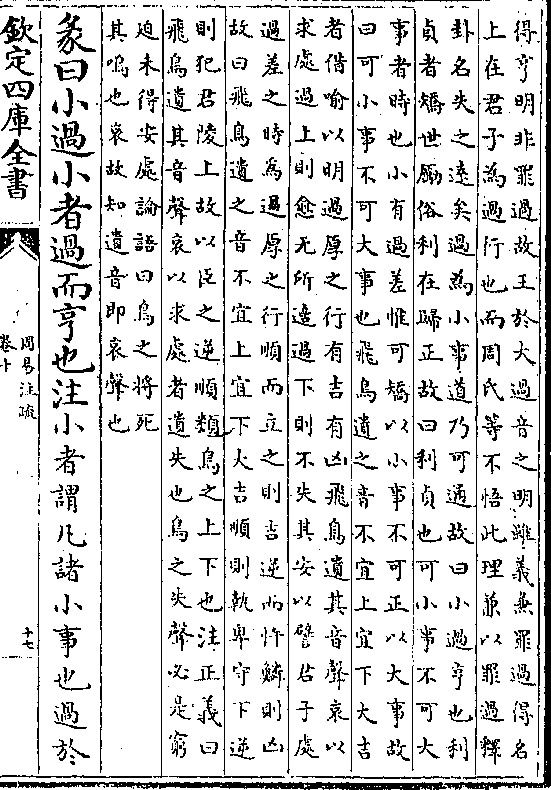 得亨明非罪過故王於大過音之明雖義兼罪過得名
上在君子為過行也而周氏等不悟此理兼以罪過釋
卦名失之遠矣過為小事道乃可通故曰小過亨也利
貞者矯世勵俗利在歸正故曰利貞也可小事不可大
事者時也小有過差惟可矯以小事不可正以大事故
曰可小事不可大事也飛鳥遺之音不宜上宜下大吉
者借喻以明過厚之行有吉有凶飛鳥遺其音聲哀以
求處過上則愈无所適過下則不失其安以譬君子處
過差之時為過厚之行順而立之則吉逆而忤鱗則凶
故曰飛鳥遺之音不宜上宜下大吉順則執卑守下逆
則犯君陵上故以臣之逆順類鳥之上下也注正義曰
飛鳥遺其音聲哀以求處者遺失也鳥之失聲必是窮
迫未得安處論語曰鳥之將死
其鳴也哀故知遺音即哀聲也
彖曰小過小者過而亨也注小者謂凡諸小事也過於
欽定四庫全書
周易注疏
卷十
十七